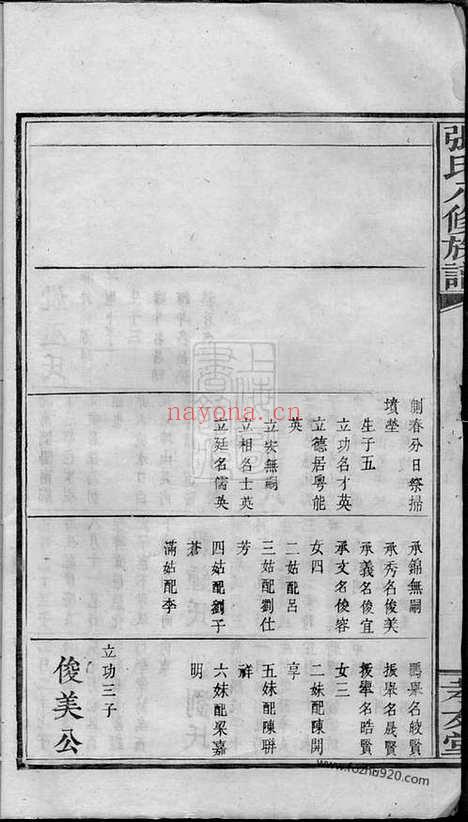 張氏八修族譜
孝友堂
剬春分日祭掃
墳塋
生子五
立功名才英
立德居粵能
英
立安無嗣
立相名士英
立廷名儒英
承錦無嗣
承秀名俊美
承義名俊宜
承文名俊容
女四
二姑配呂
三姑配劉仕
芳
四姑配劉子
蒼
滿姑配李
祥
振舉名晟賢
振舉名皓賢
女三
二妹配陳開
享
五妹配陳聯
六妹配梁嘉
明
立功三子
俊美公
nayona.cn
www.fozhu920.com